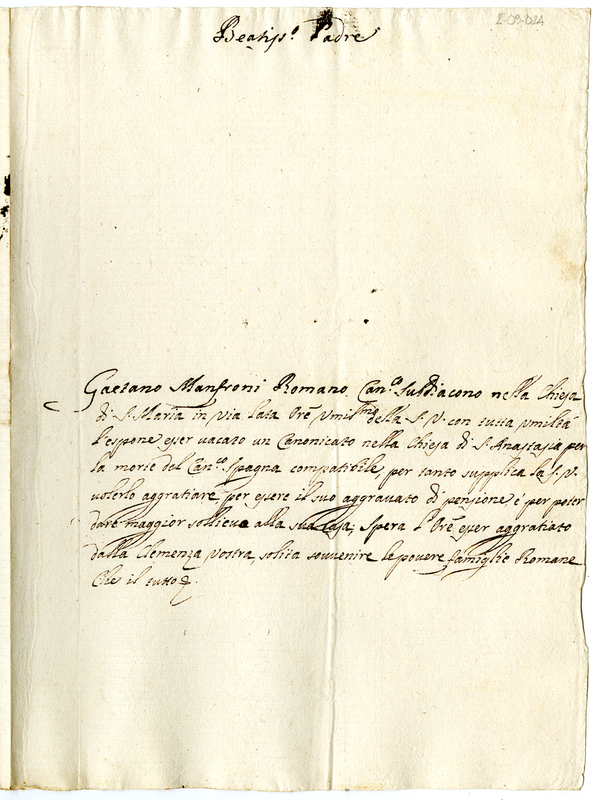 2-09-024
Beatiss.º Padre
Gaetano Manfroni Romano Can.co Suddiacono nella Chiesa
di S. Maria in Via Lata Ore Umil.mo della S. V. con tutta umiltà
l'espone esser vacato un Canonicato nella Chiesa di S. Anastasia per
la morte del Can.co Spagna compatibile, per tanto supplica la S. V.
volerlo aggratiare per essere il suo aggravato di pensione e per poter
dare maggior sollievo alla sua Casa, Spera l'Ore esser aggratiato
dalla Clemenza Vostra, solita sovvenire le povere famiglie Romane
Che il tutto